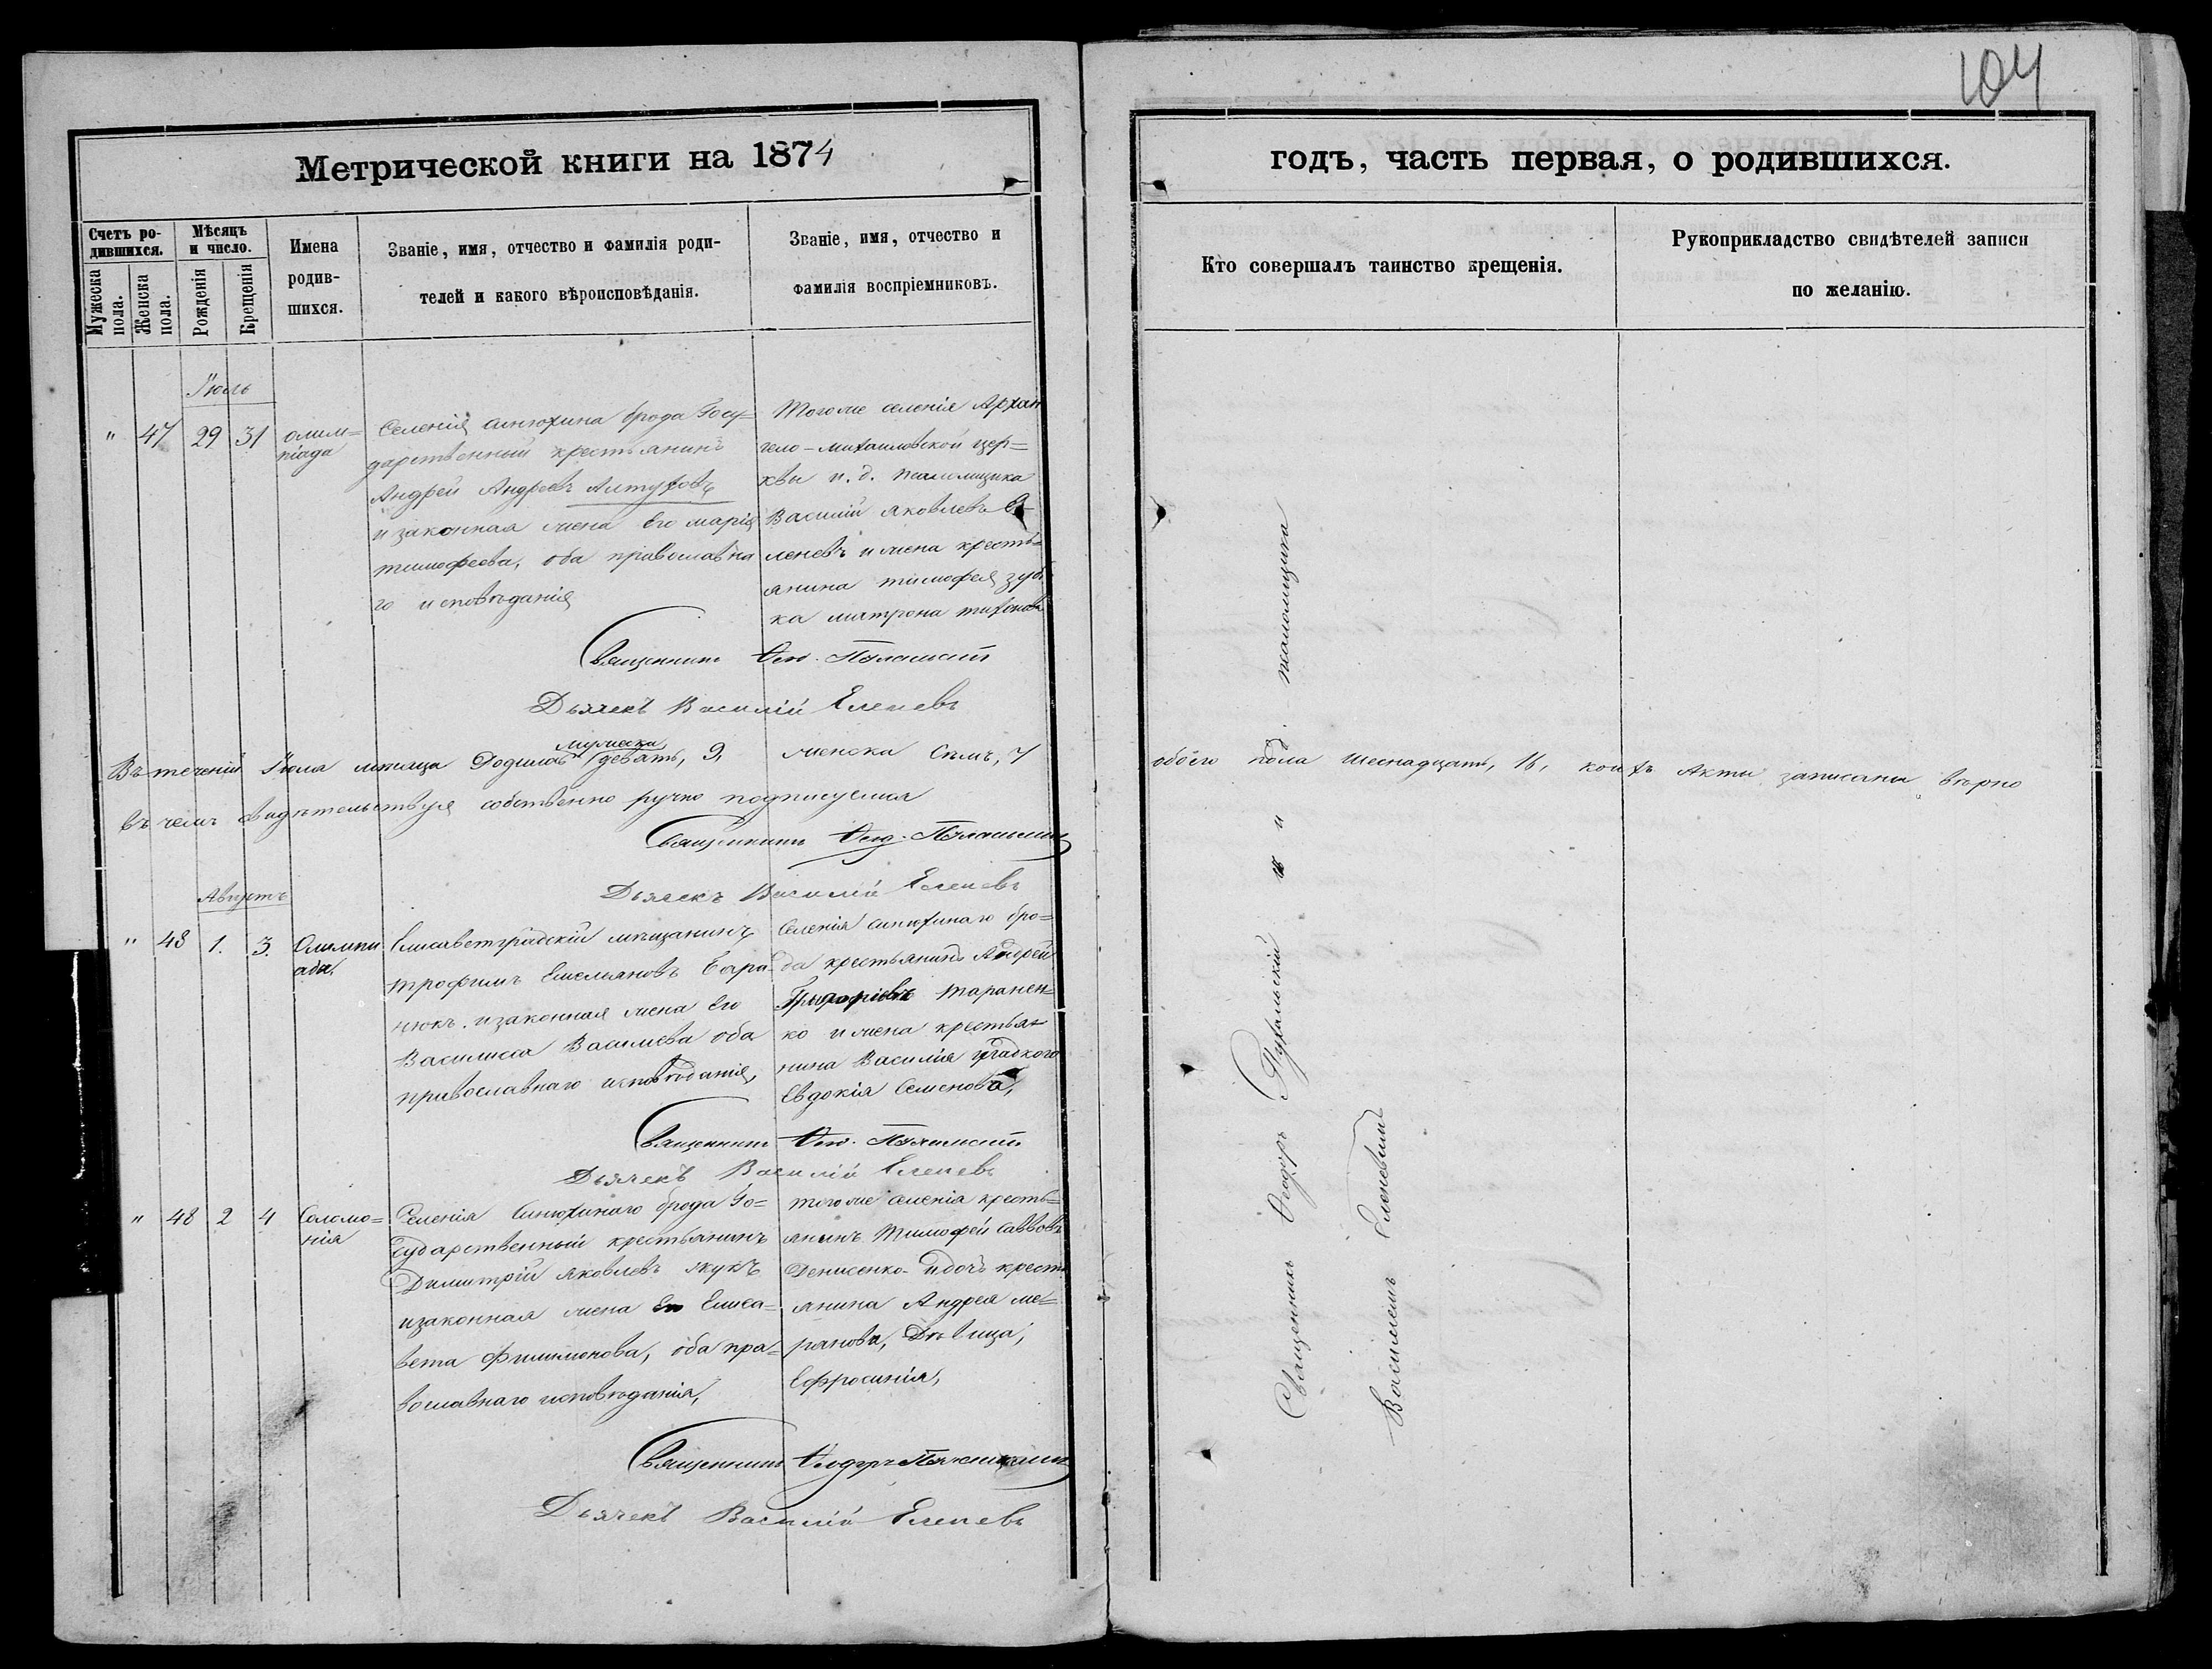 104
Метрической книги на 1874
годъ, часть первая, о родившихся.
Счетъ ро-
дившихся.
Мужеска
пола.
Женска
пола.
Мѣсяцъ
и число.
Рожденія
Крещенія
Имена
родив-
шихся.
Званіе, имя, отчество и фамилія роди-
телей и какого вѣроисповѣданія.
Званіе, имя, отчество и
фамилія воспріемниковъ.
Кто совершалъ таинство крещенія.
Рукоприкладство свидѣтелей записи
по желанію.
Іюль
" 47 29 31
олим=
піада
Селенія синюхина брода Госу=
дарственный крестьянинъ
Андрей Андреевъ Алтуховъ
и законная жена его марія
тимофеева, оба православна
го исповѣданія
Тогоже селенія Архан
гело-михаиловской цер=
квы и. д. псаломщика
Василій яковлевъ Е-
леневъ и жена кресть=
янина тимофея
ка матрона тихонова
Священникъ Ѳео.
Дьячекъ Василій Еленевъ
Въ теченіи Іюля мѣсяца Родилось мужеска девять, 9, женска семь, 7
обоего пола шеснадцать, 16, коихъ Акты записаны вѣрно
въ чемъ свидѣтельствуя собственно ручно подписуемся
Священникъ Ѳеод.
Дьячекъ Василій Еленевъ
Августъ
" 48 1. 3.
Олимпи
ада,
Елисаветградскій мѣщанинъ
трофимъ Емельяновъ Бара=
нюкъ. и законная жена Его
Василисса Васильева оба
православнаго исповѣданія,
Селенія синюхинаго бро=
да крестьянинъ Андрей
Григоріевъ таранен-
ко и жена крестья=
нина Василія гладкого
Евдокія Семенова,
Священникъ Ѳео.
Дьячекъ Василій Еленевъ
" 48 2 4
Соломо=
нія
Селенія Синюхинаго брода Го=
сударственный крестьянинъ
Димитрій яковлевъ жукъ
и законная жена Его Елиса=
вета Филимонова, оба пра=
вославнаго исповѣданія,
тогоже селенія кресть=
янинъ Тимофей Саввовъ
Денисенко и дочь кресть
янина Андрея ме=
рянова, Дѣвица,
Ефросинія,
Священникъ Ѳеодоръ
Дьячекъ Василій Еленевъ
Священникъ Ѳеодоръ Пухальскій и и псаломщика
Василіемъ Еленевымъ